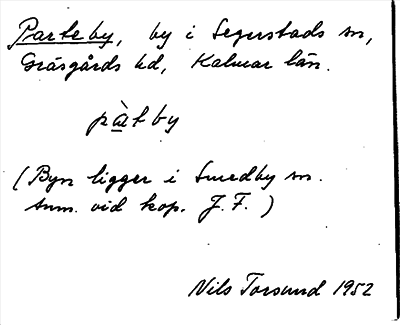 Parteby, by i Segerstads sn,
Gräsgårds hd, Kalmar län.
pàt by
(Byn ligger i Smedby sn.
Anm. vid kop. J. F.)
Nils Torsund 1952